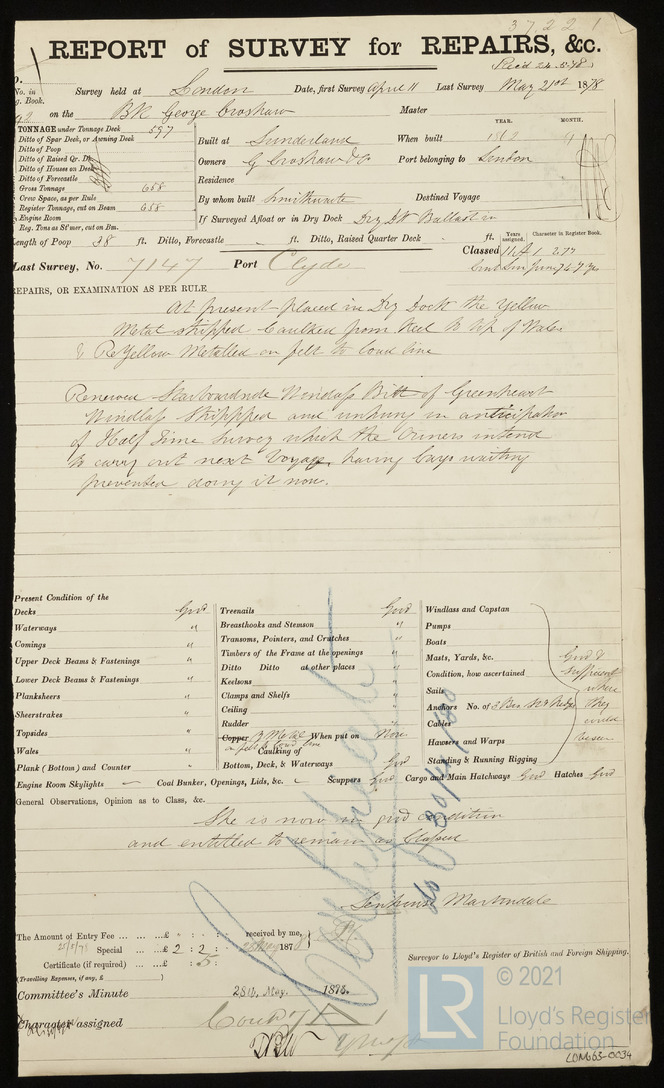 37221
REPORT of SURVEY for REPAIRS, &c.
Recd 24.5.78
No. in
g. Book.
Survey held at London Date, first Survey April 11 Last Survey May 21st 1878
on the BK George Croshaw Master
TONNAGE under Tonnage Deck 597
Ditto of Spar Deck, or Awning Deck
Ditto of Poop
Ditto of Raised Qr. Dk.
Ditto of Houses on Deck
Ditto of Forecastle
Gross Tonnage 658
Crew Space, as per Rule
Register Tonnage, cut on Beam 658
Engine Room
Reg. Tons as St'mer, cut on Bm.
YEAR. MONTH.
Built at Sunderland When built
Owners G Croshaw & Co Port belonging to London
Residence
By whom built Destined Voyage
If Surveyed Afloat or in Dry Dock Dry Dk Ballast in
Length of Poop 38 ft. Ditto, Forecastle - ft. Ditto, Raised Quarter Deck - ft.
Years assigned. Character in Register Book.
Classed
Last Survey, No. 7147 Port Clyde
REPAIRS, OR EXAMINATION AS PER RULE
At present placed in Dry Dock the Yellow
Metal stripped Caulked from keel to top of Wales
& ReYellow Metalled on felt to load line
Renewed Starboardside Windlass Bitt of Greenheart
Windlass Shippped and unhung in anticipation
of Half Time Survey which the Owners intend
to carry out next Voyage, having Cargo waiting
prevented doing it now.
Present Condition of the
Decks Good
Waterways "
Comings "
Upper Deck Beams & Fastenings "
Lower Deck Beams & Fastenings "
Planksheers "
Sheerstrakes "
Topsides "
Wales "
Plank (Bottom) and Counter "
Treenails Good
Breasthooks and Stemson "
Transoms, Pointers, and Crutches "
Timbers of the Frame at the openings "
Ditto Ditto at other places "
Keelsons "
Clamps and Shelfs "
Ceiling "
Rudder "
Copper Y Metal When put on Now
on felt to load line
Caulking of
Bottom, Deck, & Waterways Good
Windlass and Capstan
Pumps
Boats
Masts, Yards, &c.
Condition, how ascertained
Sails
Anchors No. of 3
Cables
Hawsers and Warps
Standing & Running Rigging
Good &
sufficient
where
they
could
be seen
Engine Room Skylights - Coal Bunker, Openings, Lids, &c. - Scuppers Good Cargo and Main Hatchways Good Hatches Good
General Observations, Opinion as to Class, &c.
She is now in good condition
and entitled to remain as Classed
Martindale
The Amount of Entry Fee ... £ " : :
25/5/78 Special ... £ 2 : 2 :
Certificate (if required) ... £ : 5 :
(Travelling Expenses, if any, £ )
received by me,
1878
Surveyor to Lloyd's Register of British and Foreign Shipping.
Committee's Minute 28th. May. 1878.
Character assigned
LR
© 2021
Lloyd's Register
Foundation
LON663-0034